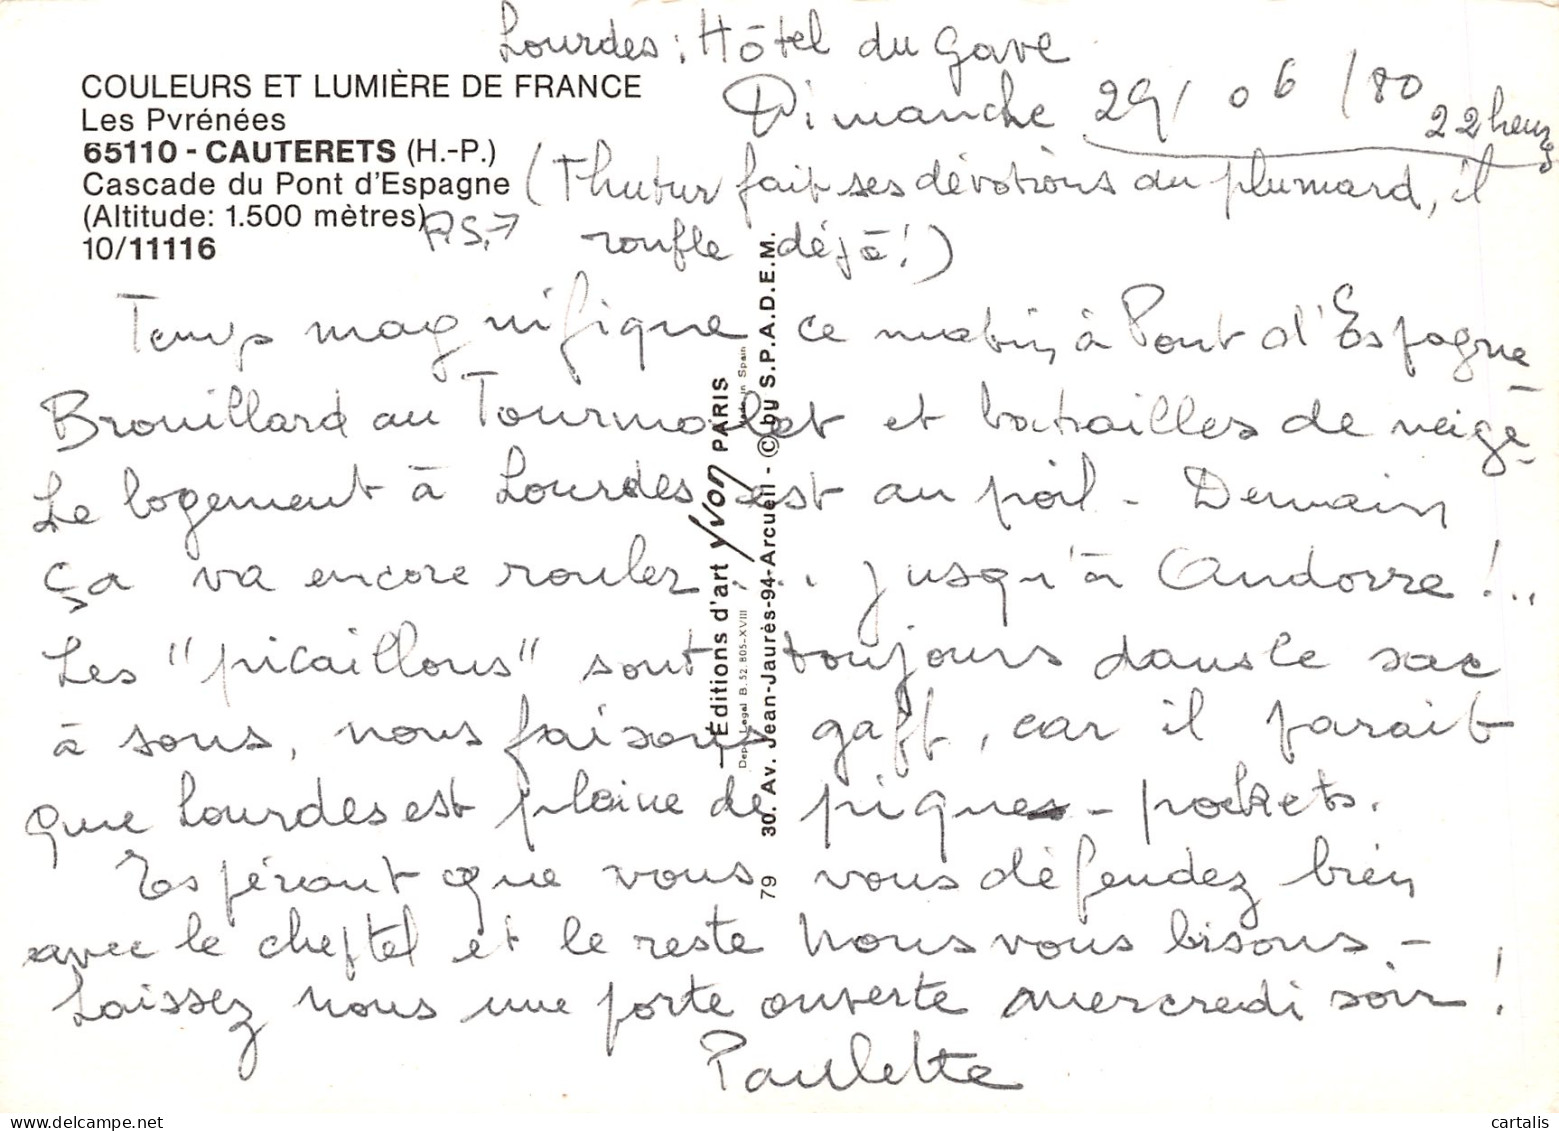 Lourdes : Hôtel du Gave
Dimanche 29/06/80 22 heures
COULEURS ET LUMIÈRE DE FRANCE
Les Pyrénées
65110 - CAUTERETS (H.-P.)
Cascade du Pont d'Espagne
(Altitude: 1.500 mètres)
10/11116
P.S. → (Thutur fait ses dévotions au plumard, il
ronfle déjà !)
Temps magnifique ce matin à Pont d'Espagne
Brouillard au Tourmalet et batailles de neige -
Le logement à Lourdes est au poil - Demain
ça va encore rouler... jusqu'à Andorre !..
Les "picaillous" sont toujours dans le sac
à sous, nous faisons gaff, car il parait
que Lourdes est pleine de piques-pockets.
Espérant que vous vous défendez bien
avec le cheptel et le reste nous vous bisous -
Laissez nous une porte ouverte mercredi soir !
Paulette
Éditions d'art Yvon PARIS
Dep. Legal B. 52.805-XVIII
in Spain
79 30. Av. Jean-Jaurès-94-Arcueil - © by S.P.A.D.E.M.
cartalis
www.delcampe.net